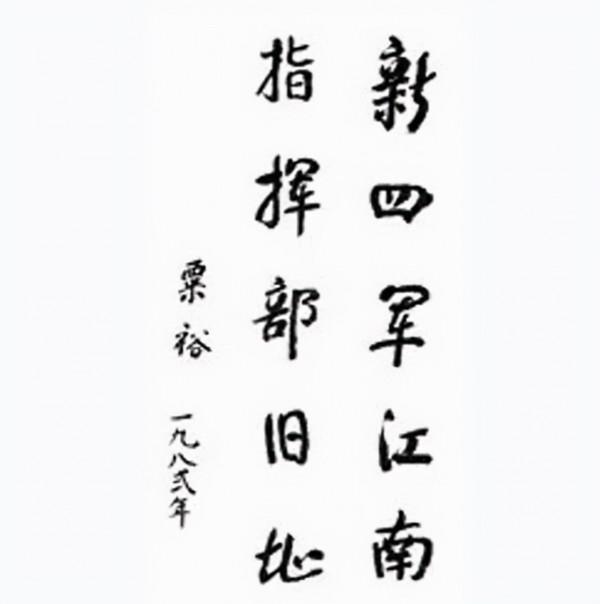 新四军江南
指挥部旧址
粟裕
一九八弍年